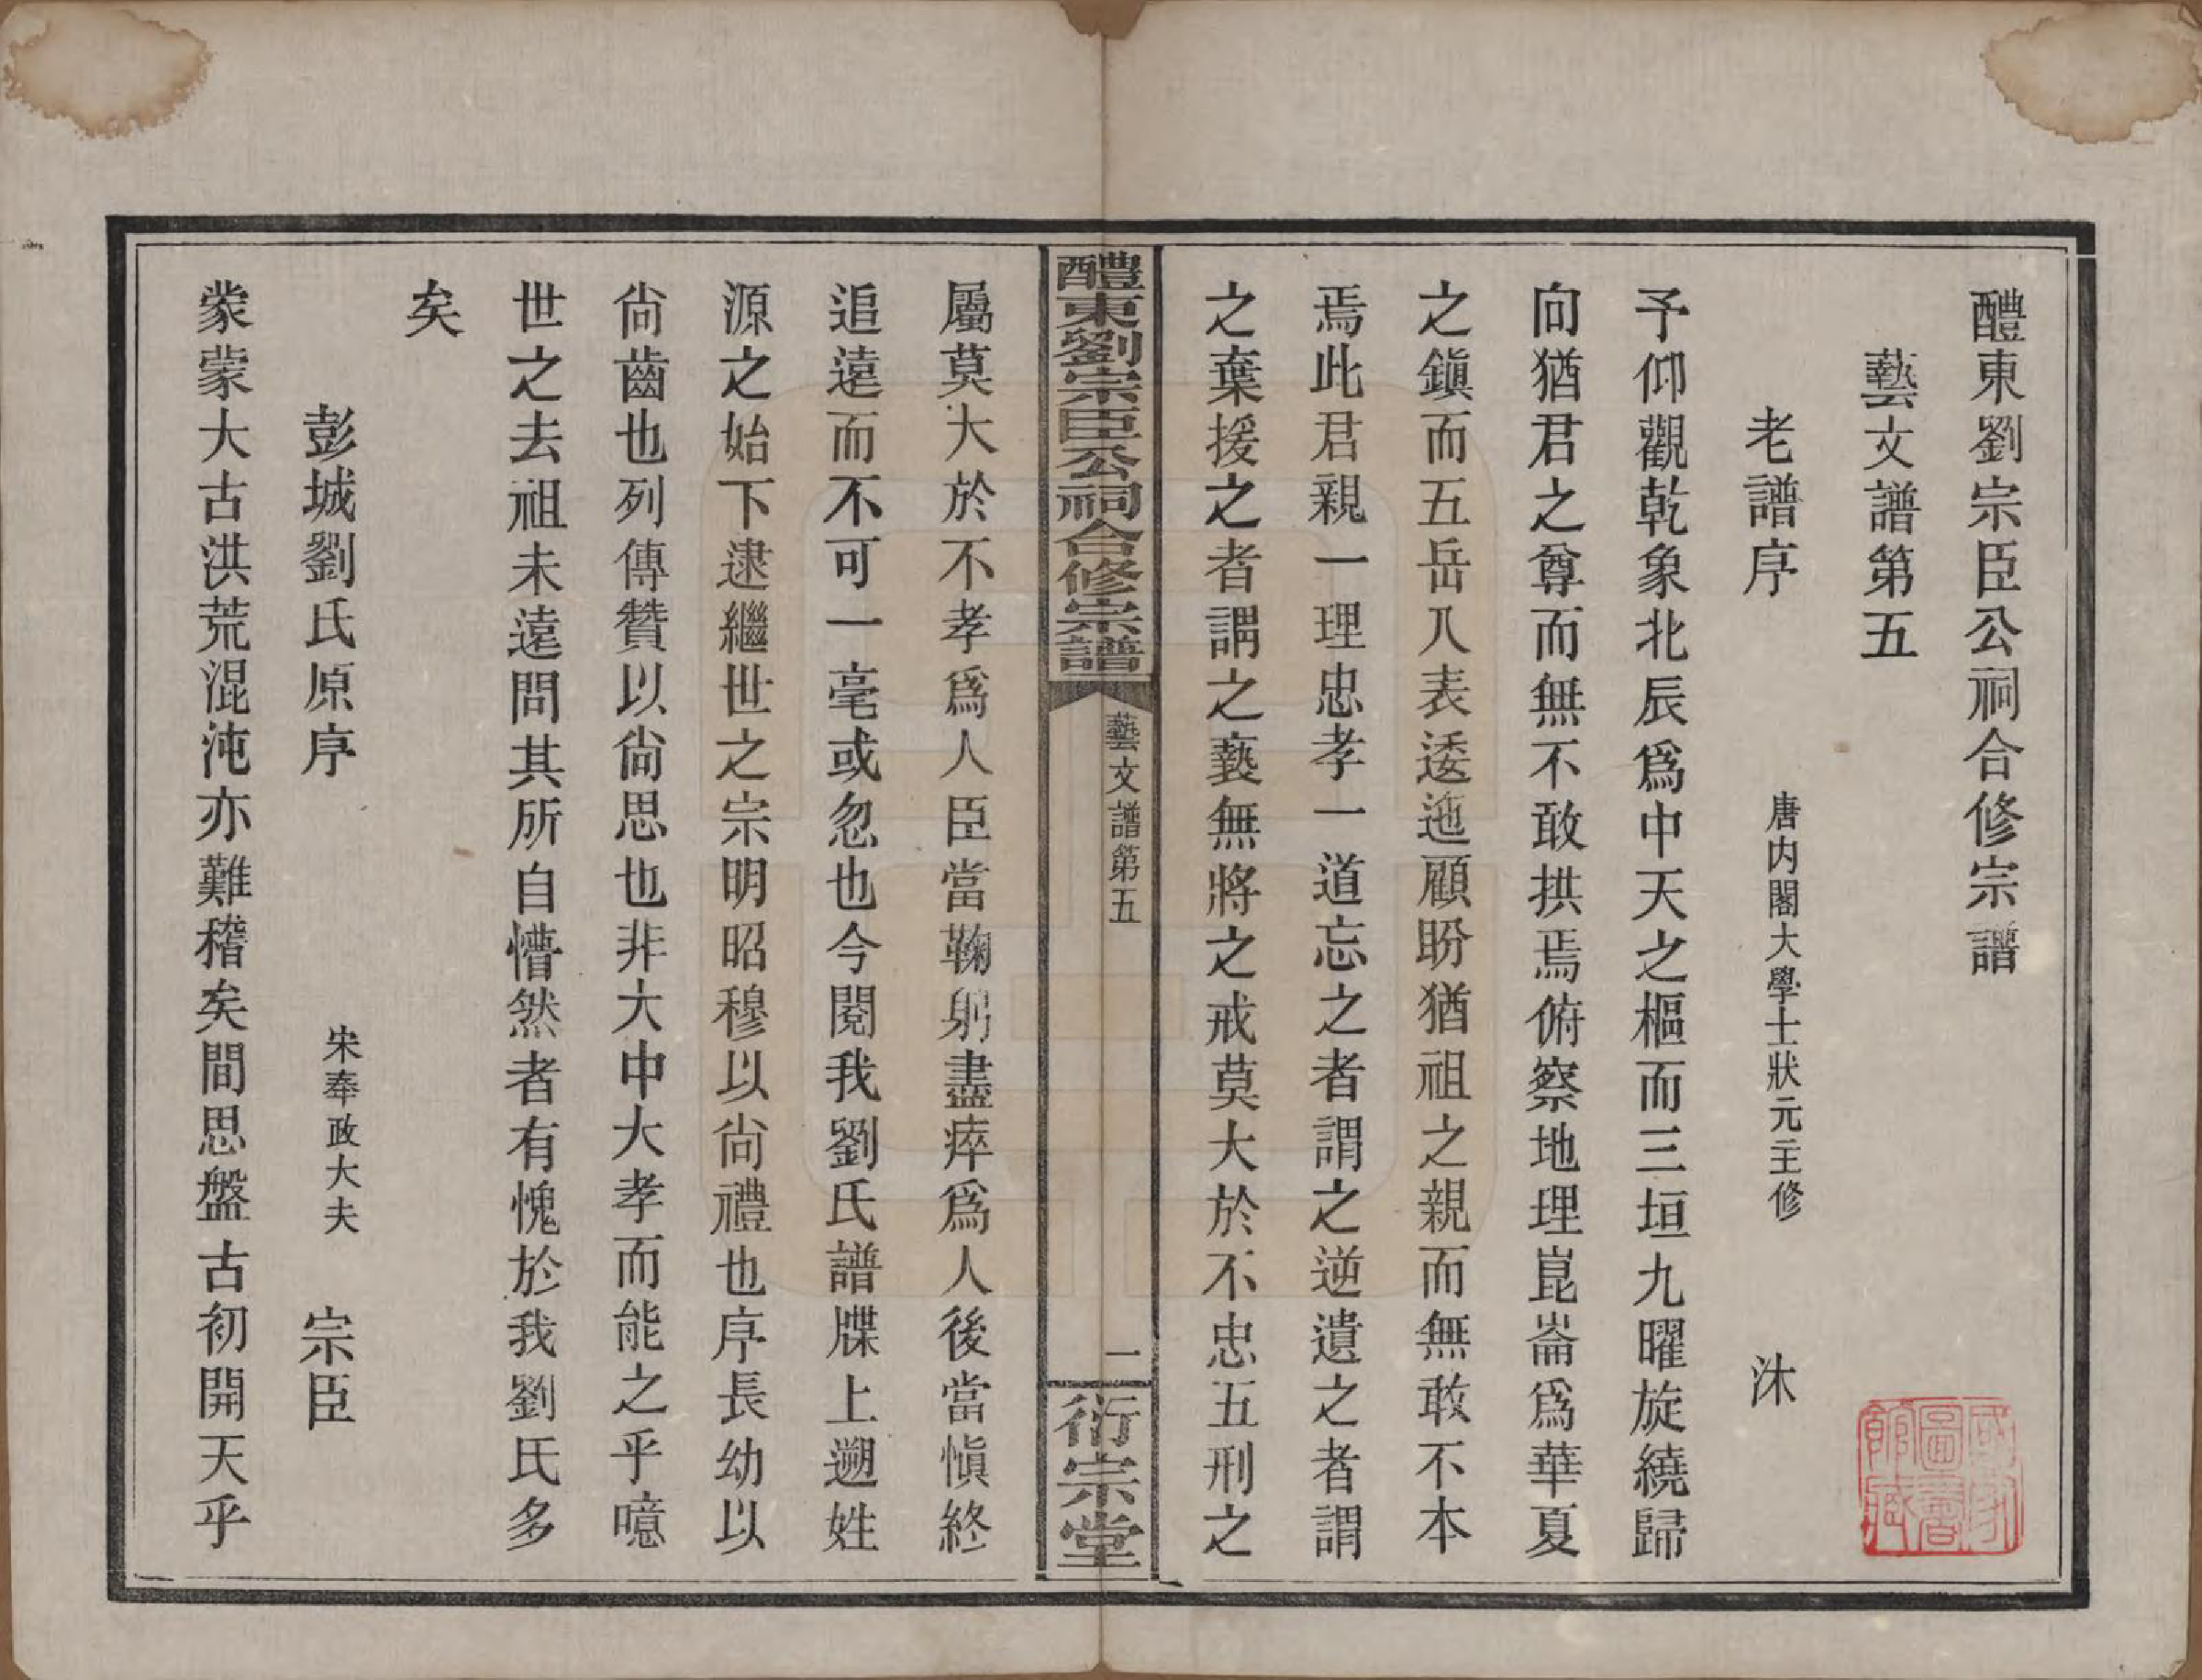 醴東劉宗臣公祠合修宗譜
藝文譜第五
老譜序 唐內閣大學士狀元主修 沐
予仰觀乾象北辰爲中天之樞而三垣九曜旋繞歸
向猶君之尊而無不敢拱焉俯察地理崑崙爲華夏
之鎮而五岳八表逶迤顧盼猶祖之親而無敢不本
焉此君親一理忠孝一道忘之者謂之逆遺之者謂
之棄援之者謂之褻無將之戒莫大於不忠五刑之
醴東劉宗臣公祠合修宗譜 藝文譜第五 一 衍宗堂
屬莫大於不孝爲人臣當鞠躬盡瘁爲人後當慎終
追遠而不可一毫或忽也今閱我劉氏譜牒上遡姓
源之始下逮繼世之宗明昭穆以尙禮也序長幼以
尙齒也列傳贊以尙思也非大中大孝而能之乎噫
世之去祖未遠問其所自懵然者有愧於我劉氏多
矣
彭城劉氏原序 宋奉政大夫 宗臣
蒙蒙大古洪荒混沌亦難稽矣間思盤古初開天乎
國家圖書館藏